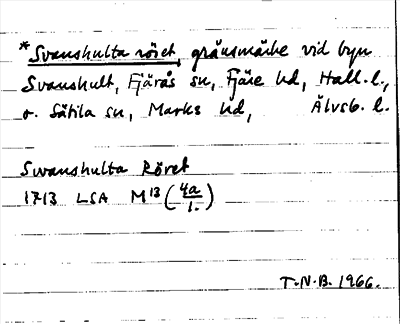 *Svanshulta röret, gränsmärke vid byn
Svanshult, Fjärås sn, Fjäre hd, Hall. l.,
o. Sätila sn, Marks hd, Älvsb. l.
Swanshulta Röret
1713 LSA M13 (4a/1.)
T.N.B. 1966.